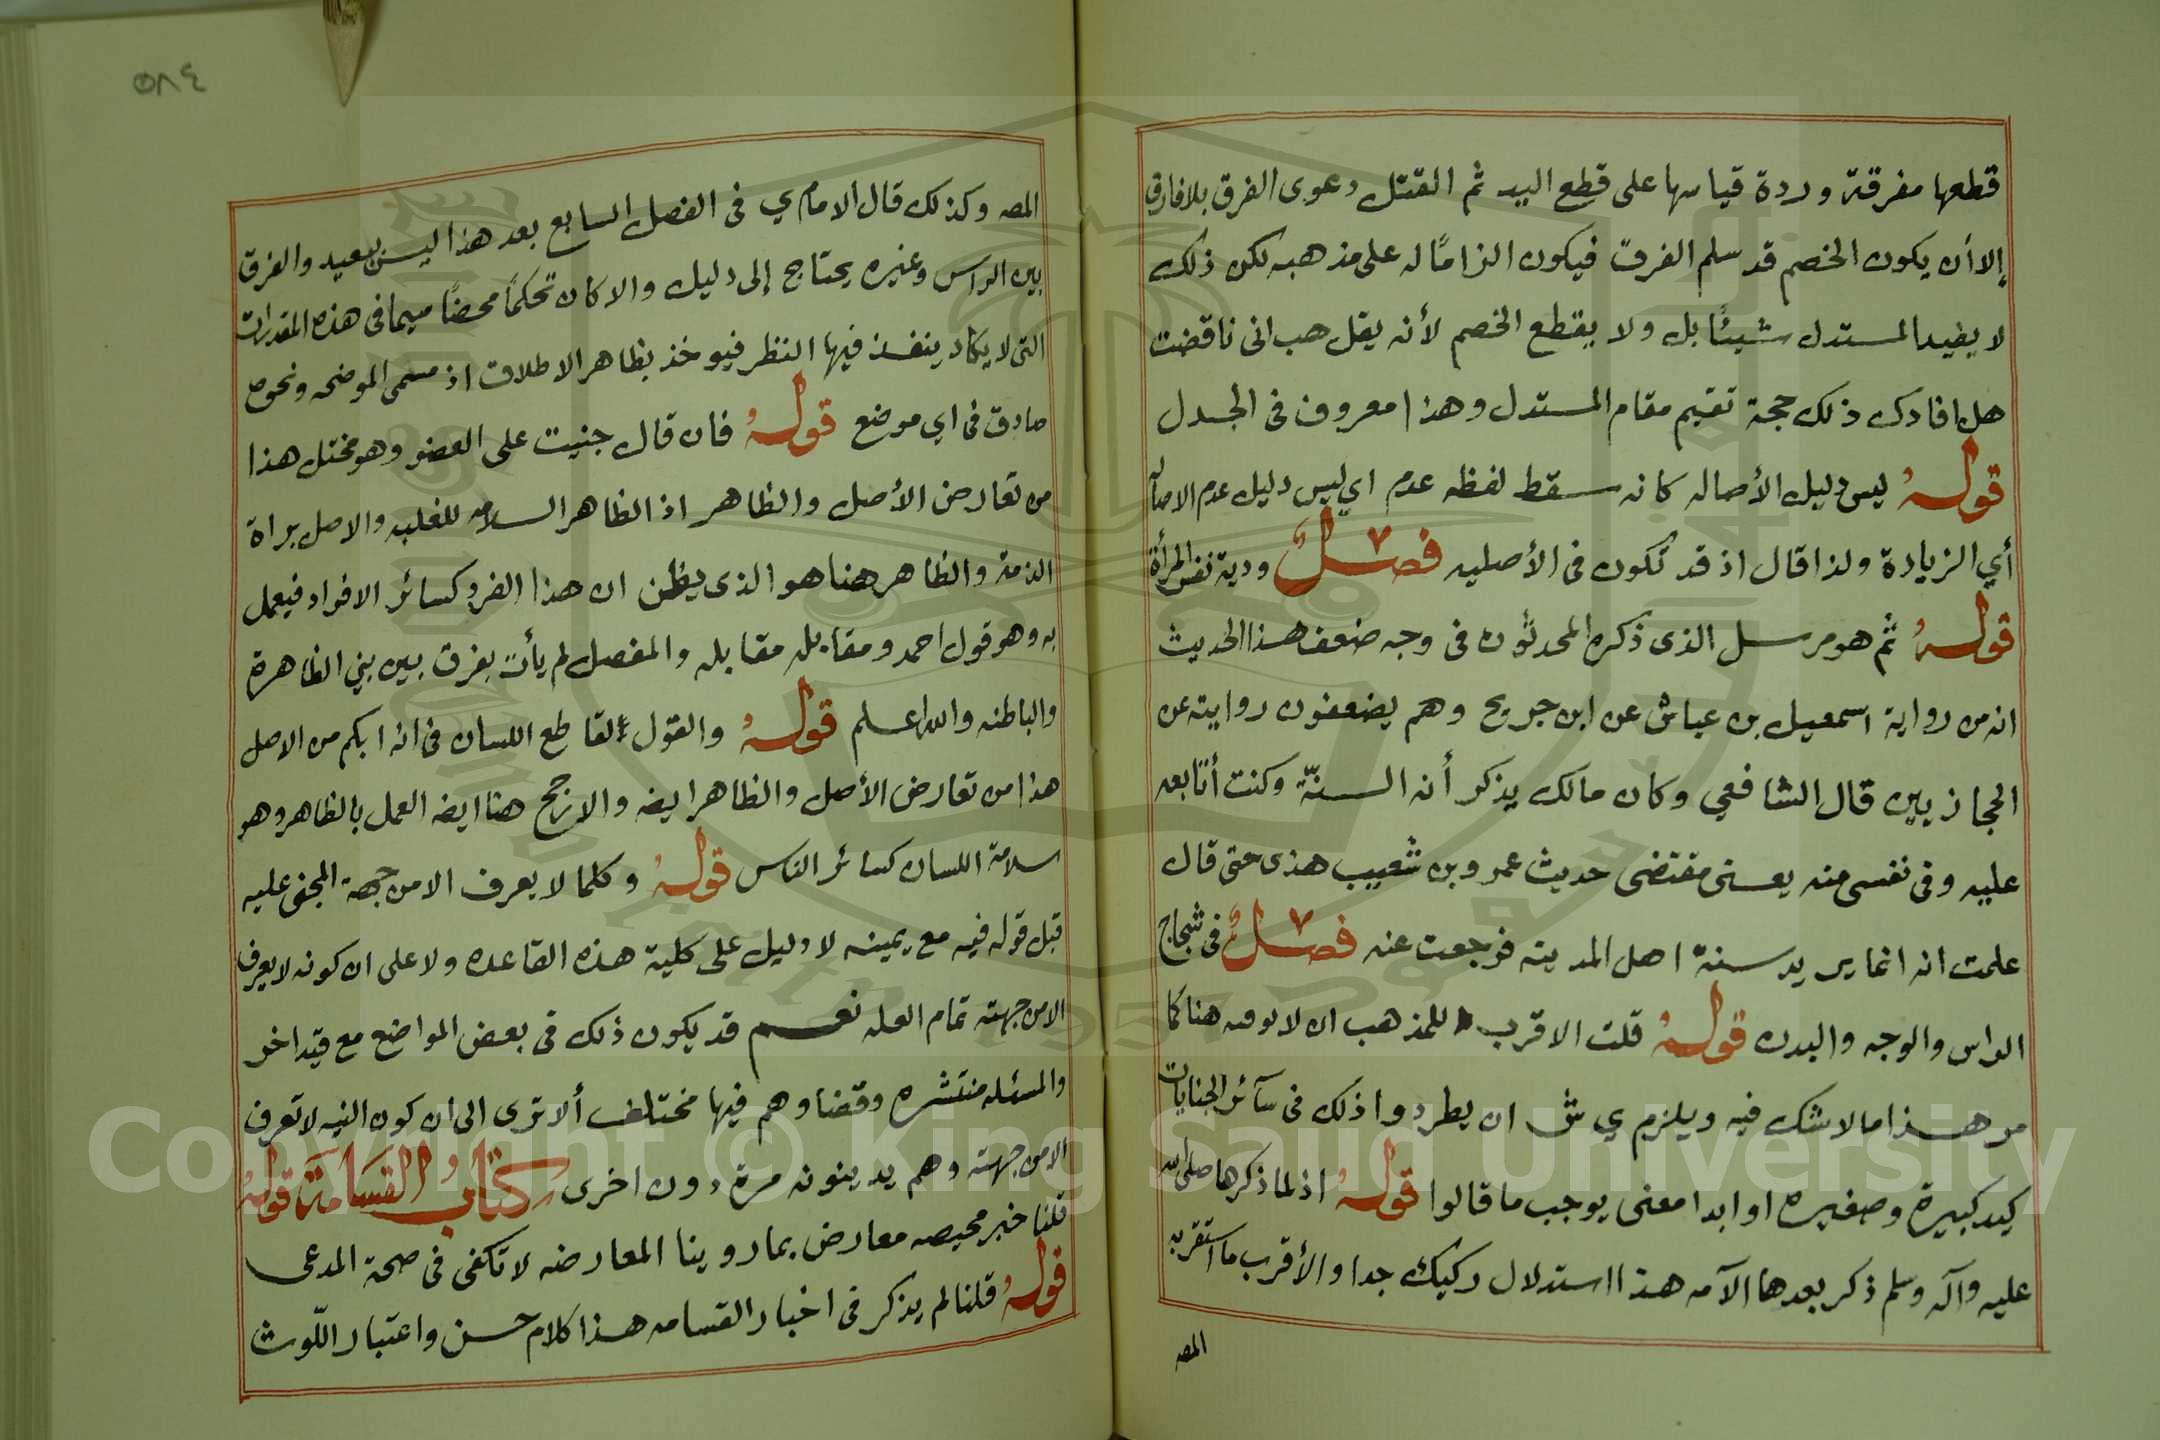 قطعها مفرقة وردة قياسها على قطع اليد ثم القتل دعوى الفرق بلا فارق
إلا أن يكون الخصم قد سلم الفرق فيكون الزامًا له على مذهبه لكن ذلك
لا يفيد المستدل شيئًا بل ولا يقطع الخصم لأنه يقل هب انى ناقضت
هل افادك ذلك حجة تقيم مقام المستدل وهذا معروف فى الجدل
قوله ليس دليل الأصاله كانه سقط لفظه عدم اي ليس دليل عدم الاصاله
أي الزيادة ولذا قال اذ قد تكون فى الأصليه فصل ودية نفس المرأة
قوله ثم هو مرسل الذى ذكره المحدثون فى وجه ضعف هذا الحديث
انه من رواية اسمعيل بن عياش عن ابن جريج وهم يضعفون روايته عن
الحجازيين قال الشافعي وكان مالك يذكر أنه السنّة وكنت أتابعه
عليه وفى نفسى منه يعنى مقتضى حديث عمرو بن شعيب هذى حتى قال
علمت انه انما يريد سنة اهل المدينه فرجعت عنه فصل فى شجاج
الراس والوجه والبدن قوله قلت الاقرب للمذهب ان لا هنا كما
مر هذا ما لا شك فيه ويلزم ي ش ان يطردوا ذلك فى سآئر الجنايات
كيد كبيرة وصغيره او ابدا معنى يوجب ما قالوا قوله اذ لما ذكرها صلى الله
عليه وآله وسلم ذكر بعدها الآمه هذا استدلال ركيك جدا والأقرب ما استقربه
المصه
٥٨٤
المصه وكذلك قال الامام ي فى الفصل السابع بعد هذا ليس ببعيد والفرق
بين الراس وغيره يحتاج إلى دليل والا كان تحكمًا محضًا سيما فى هذه المقدرات
التى لا يكاد ينفذ فيها النظر فيوخذ بظاهر الاطلاق اذ مسمى الموضحه ونحوها
صادق فى اي موضع قوله فان قال جنيت على العضو وهو مختل هذا
من تعارض الأصل والظاهر اذ الظاهر السلامه للغلبه والاصل براة
الذمة والظاهر هنا هو الذى يظن ان هذا الفرد كسائر الافراد فيعمل
به وهو قول احمد ومقابله مقابله والمفصل لم يأت بفرق بين بيني الظاهرة
والباطنه والله اعلم قوله والقول لقاطع اللسان فى انه ابكم من الاصل
هذا من تعارض الأصل والظاهر ايضه والارجح هنا ايضه العمل بالظاهر وهو
سلامة اللسان كسائر الناس قوله وكلما لا يعرف الا من جهة المجنى عليه
قبل قوله فيه مع يمينه لا دليل على كلية هذه القاعده ولا على ان كونه لا يعرف
الا من جهته تمام العله نعم قد يكون ذلك فى بعض المواضع مع قيد اخر
والمسئله منتشره وقضاوهم فيها مختلف ألا ترى الى ان كون النيه لا تعرف
الا من جهته وهم يدينونه مرة دون اخرى كتاب القسامة قوله
قلنا خبر محيصه معارض بما روينا المعارضه لا تكفى فى صحة المدعى
قوله قلنا لم يذكر فى اخبار القسامه هذا كلام حسن واعتبار اللّوث
Copyright © King Saud University